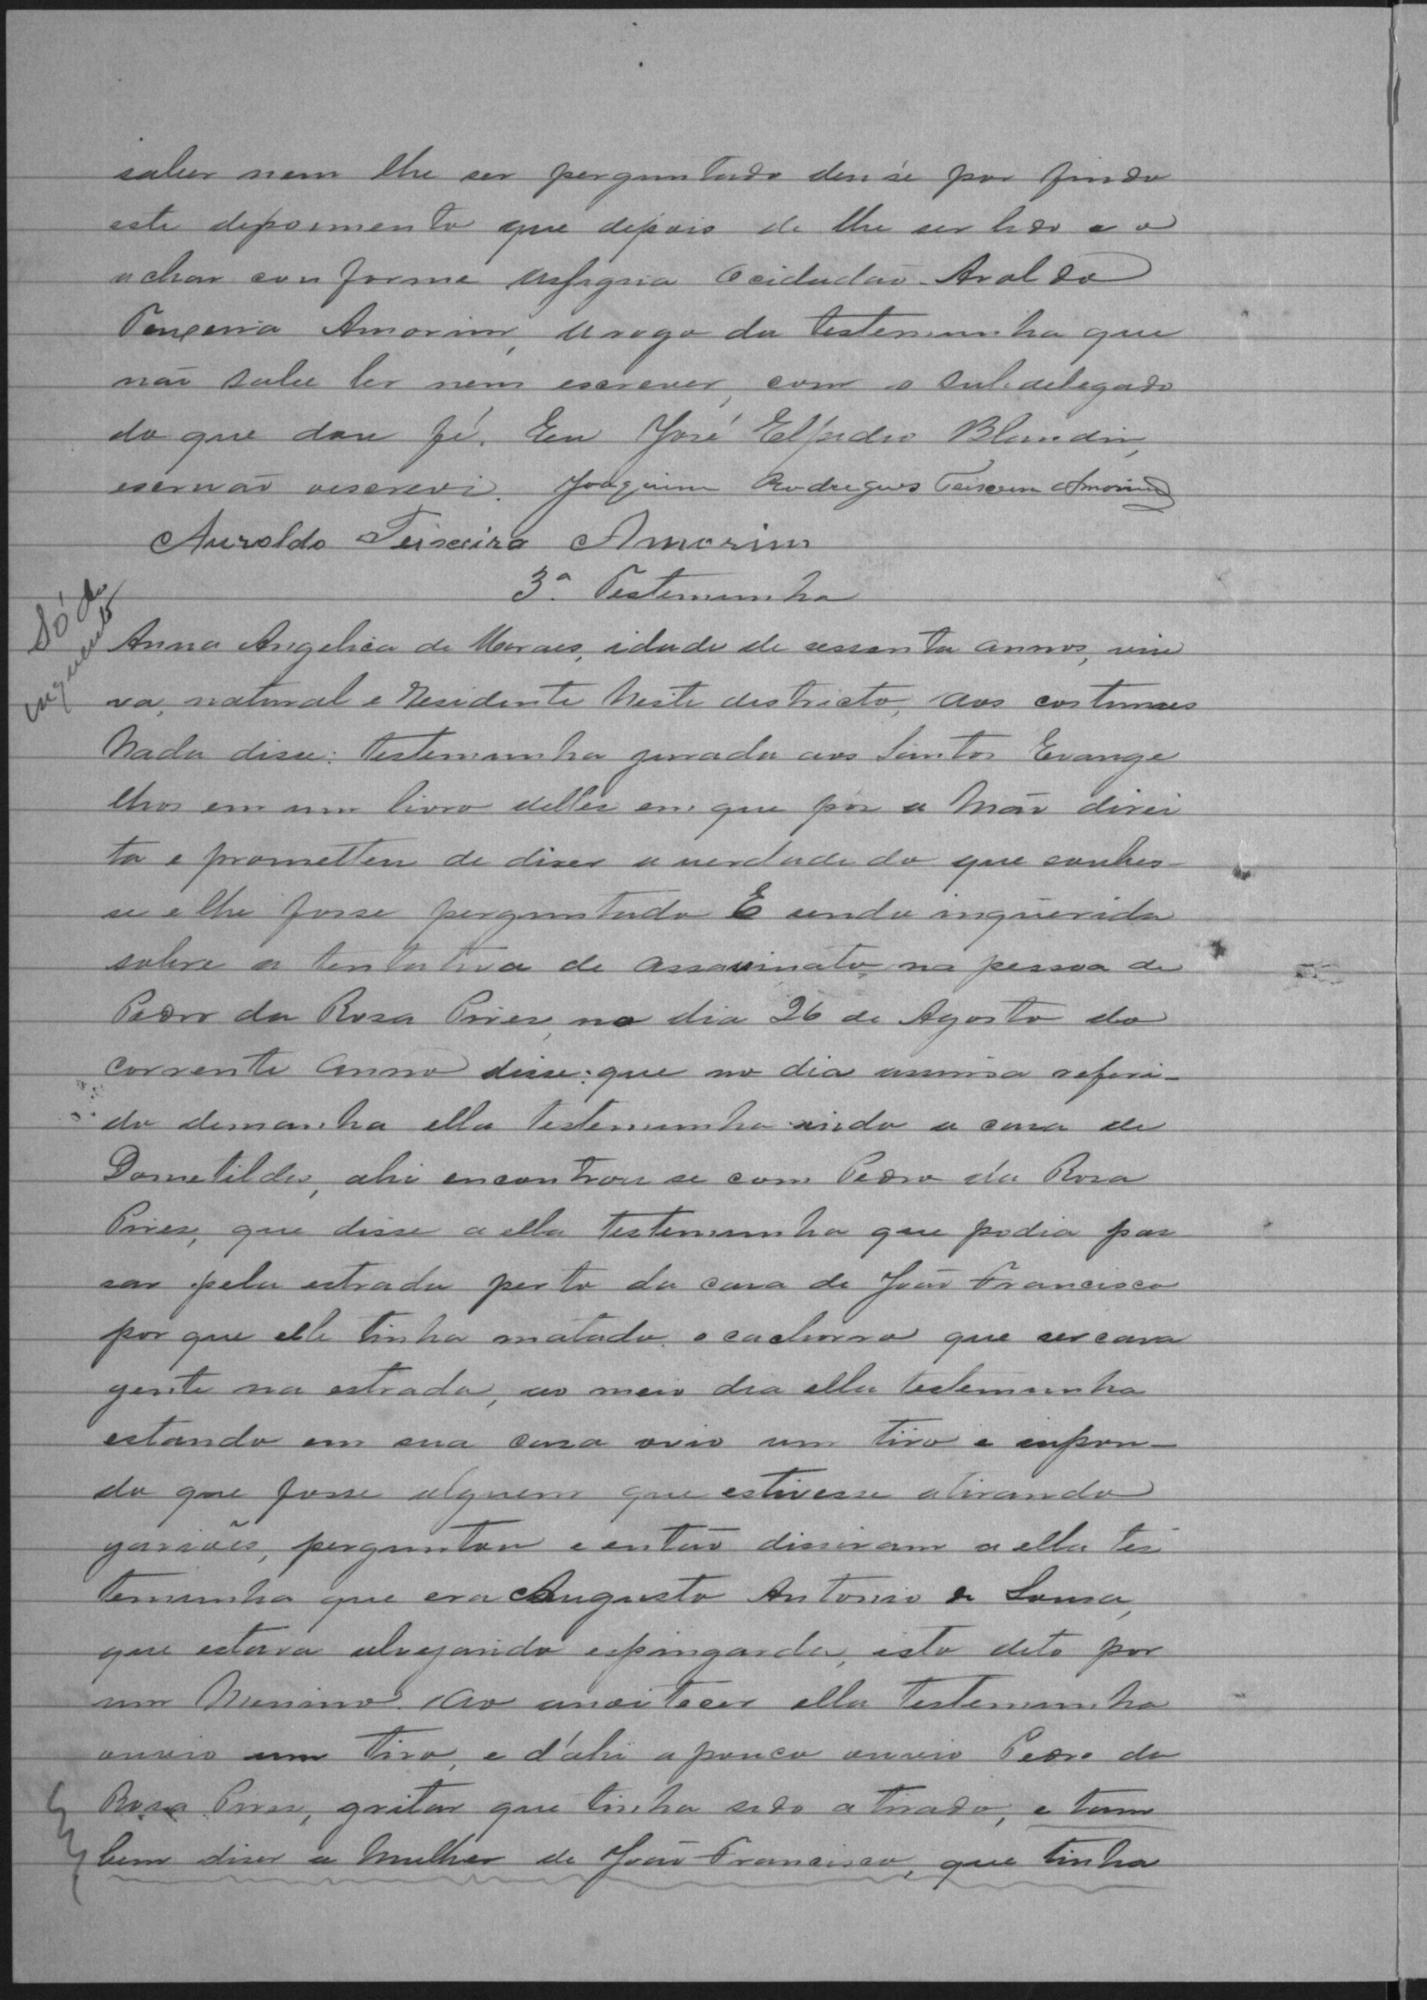 saber nem lhe ser perguntado deu-se por findo
este depoimento que depois de lhe ser lido e o
achar conforme assigna o cidadão Aroldo
Teixeira Amorim, a rogo da testemunha que
não sabe ler nem escrever, com o subdelegado
do que dou fé. Eu José Elpidio Blandin,
escrivão oescrevi. Joaquim Rodrigues Teixeira Amorim
Auroldo Teixeira Amorim
3ª Testemunha
Só do
inquerito
Anna Angelica de Moraes, idade de sessenta annos, viu
va, natural e residente neste districto, aos costumes
nada disse: testemunha jurada aos Santos Evange
lhos em um livro delles em que pôz a mão direi
ta e prometteu de dizer a verdade do que soubes-
se e lhe fosse perguntado E sendo inquerida
sobre a tentativa de assassinato na pessoa de
Pedro da Rosa Pires, no dia 26 de Agosto do
corrente anno disse: que no dia assima referi-
do demanha ella testemunha indo a casa de
Dometildes, ahi encontrou se com Pedro da Rosa
Pires, que disse a ella testemunha que podia pas
sar pela estrada perto da casa de João Francisco
por que elle tinha matado o cachorro que sercava
gente na estrada, ao meio dia ella testemunha
estando em sua casa ovio um tiro e supon-
do que fosse alguem que estivesse atirando
gaviões, perguntou e então disseram a ella tes
temunha que era Augusto Antonio de Sousa,
que estava alvejando espingarda, isto dito por
um menino. Ao anoitecer ella testemunha
ouvio um tiro, e d'ahi a pouco ouvio Pedro da
Rosa Pires, gritar que tinha sido atirado, e tam
bem diser a mulher de João Francisco, que tinha